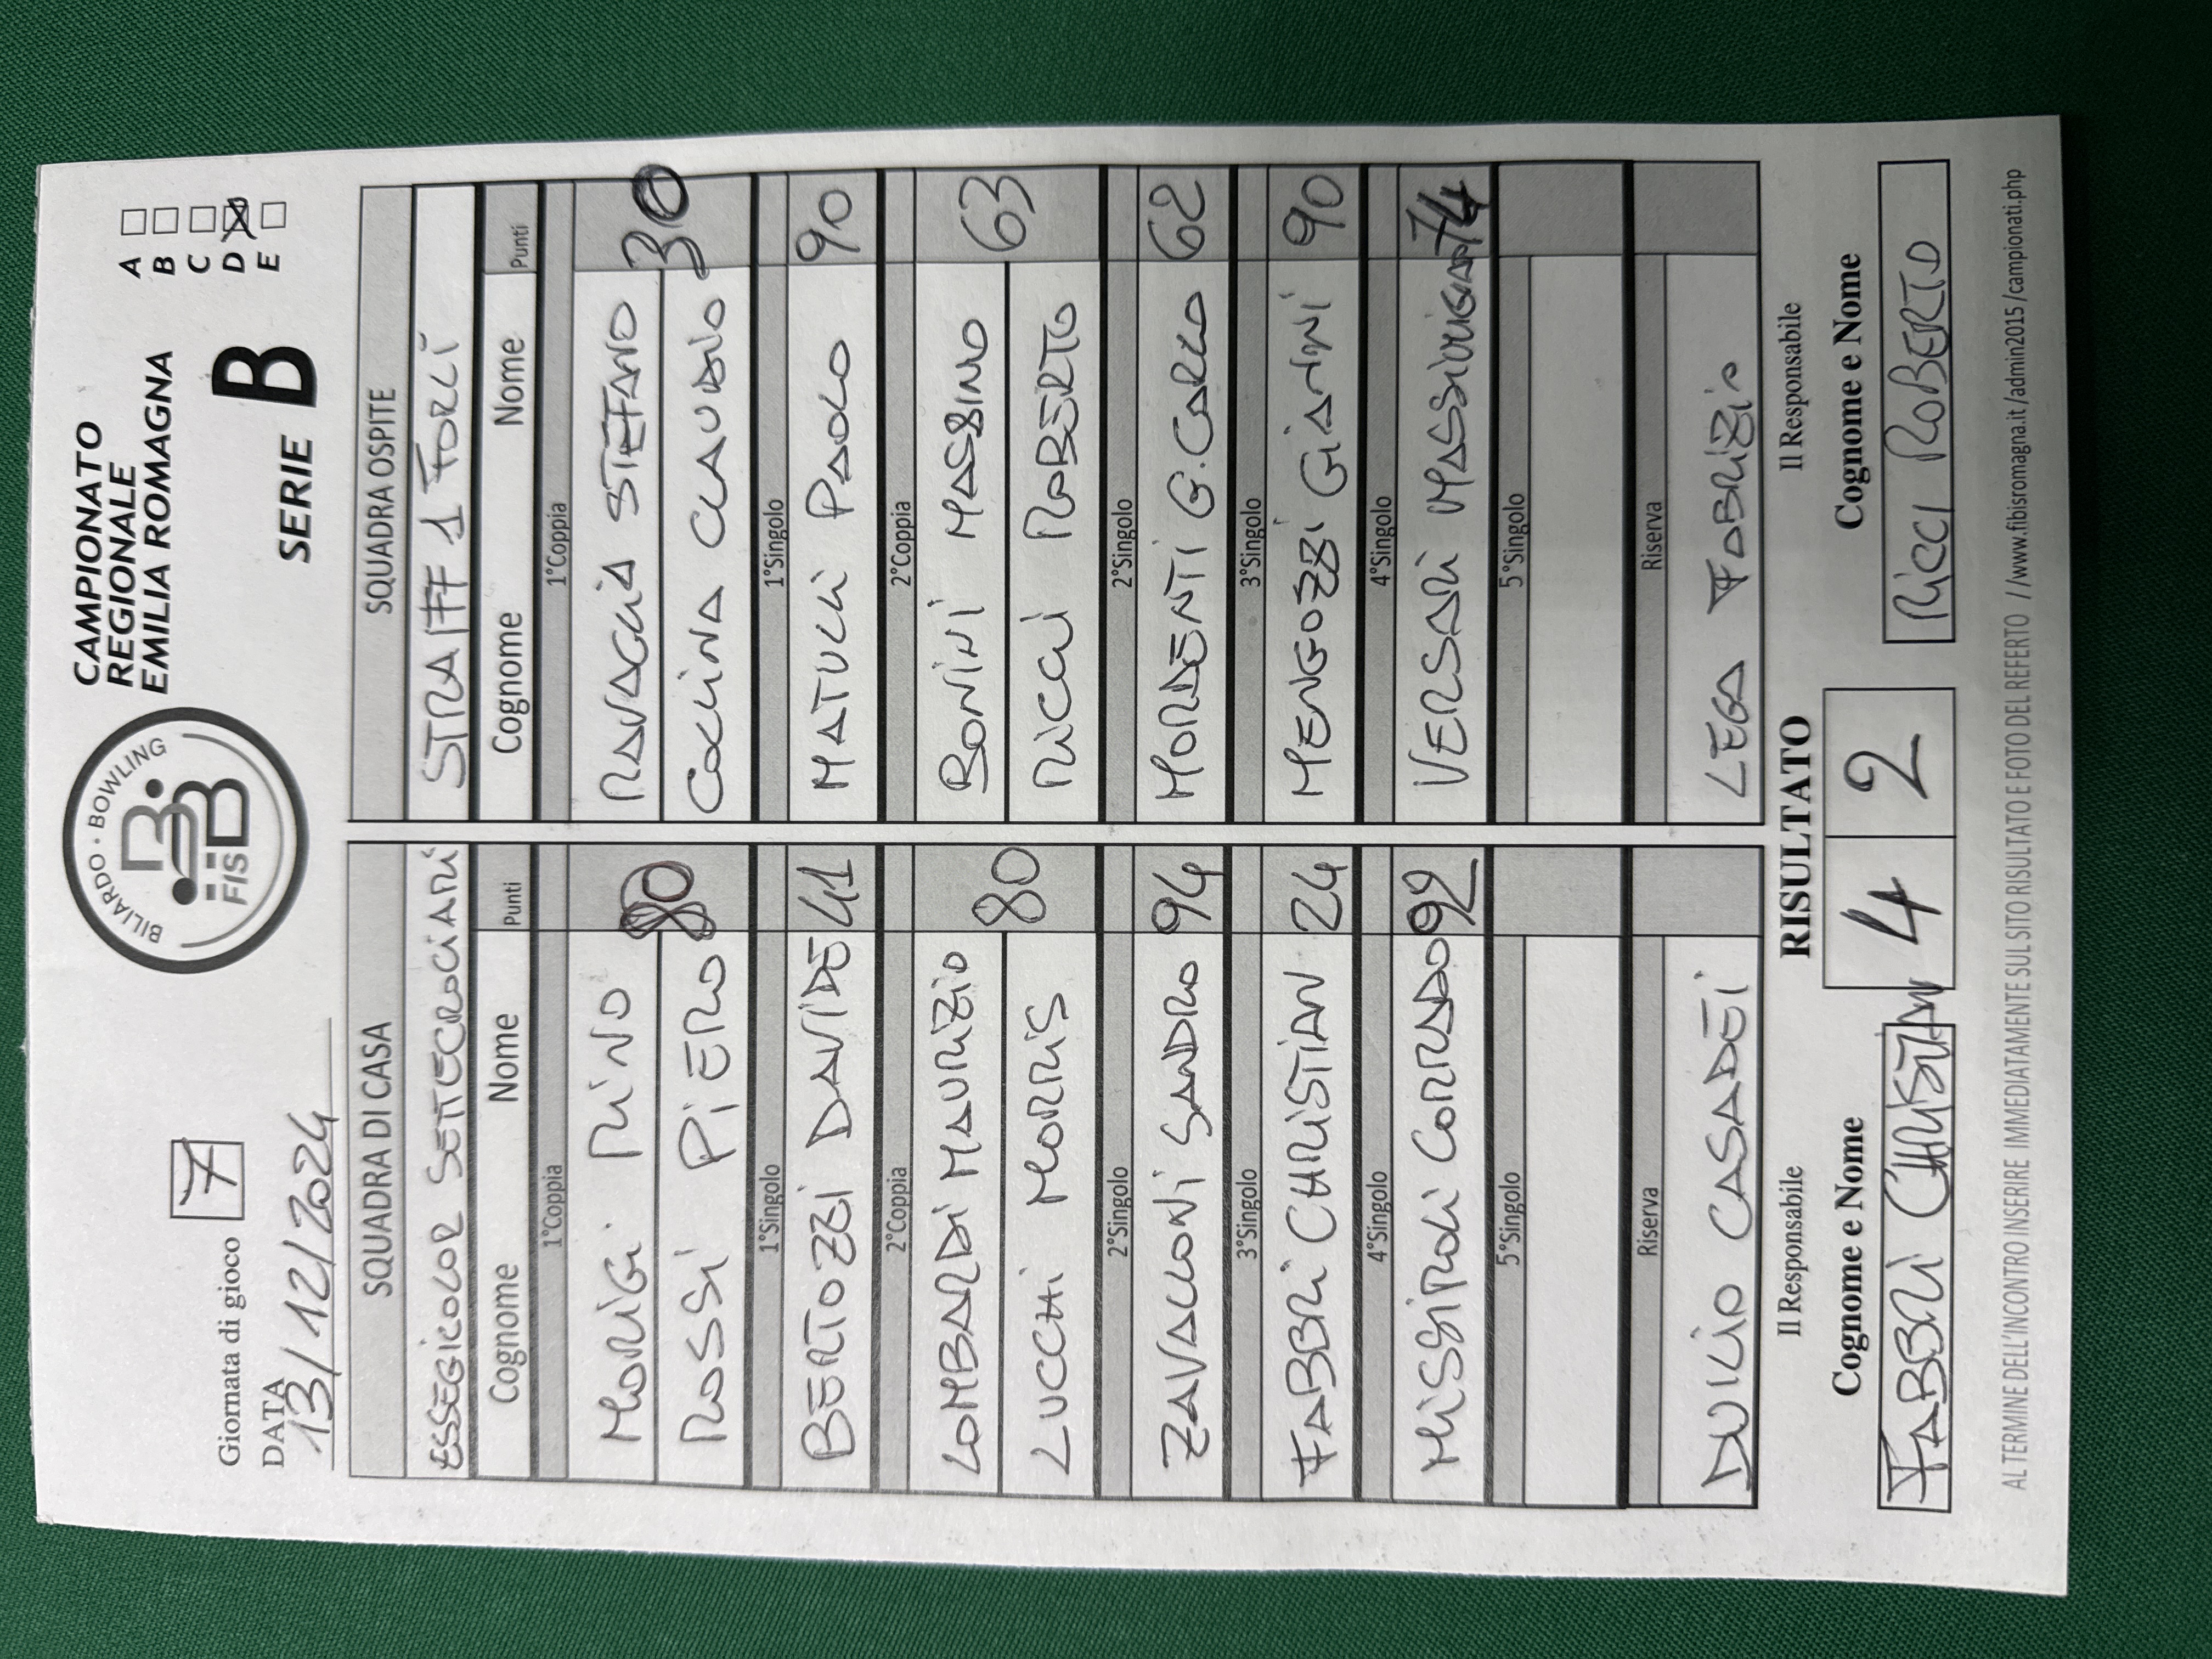 Giornata di gioco 7
DATA
13/12/2024
BILIARDO · BOWLING
FISBB
CAMPIONATO
REGIONALE
EMILIA ROMAGNA
SERIE B
A
B
C
D
E
SQUADRA DI CASA
ESSEGICOLOR SETTECROCIARI
Cognome Nome Punti
1°Coppia
MORIGI RINO 80
ROSSI PIERO
1°Singolo
BERTOZZI DAVIDE 41
2°Coppia
LOMBARDI MAURIZIO 80
LUCCHI MORRIS
2°Singolo
ZAVALLONI SANDRO 94
3°Singolo
FABBRI CHRISTIAN 24
4°Singolo
MISSIROLI CORRADO 92
5°Singolo
Riserva
DUILIO CASADEI
SQUADRA OSPITE
STRAFF 1 FORLÌ
Cognome Nome Punti
1°Coppia
RAVAGLIA STEFANO 30
COLLINA CLAUDIO
1°Singolo
MATULLI PAOLO 90
2°Coppia
BONINI MASSIMO 63
RICCI ROBERTO
2°Singolo
MORDENTI G.CARLO 62
3°Singolo
MENGOZZI GIANNI 90
4°Singolo
VERSARI 74
5°Singolo
Riserva
LEGA FABRIZIO
RISULTATO
4 2
Il Responsabile
Cognome e Nome
FABBRI CHRISTIAN
Il Responsabile
Cognome e Nome
RICCI ROBERTO
AL TERMINE DELL'INCONTRO INSERIRE IMMEDIATAMENTE SUL SITO RISULTATO E FOTO DEL REFERTO //www.fibisromagna.it/admin2015/campionati.php